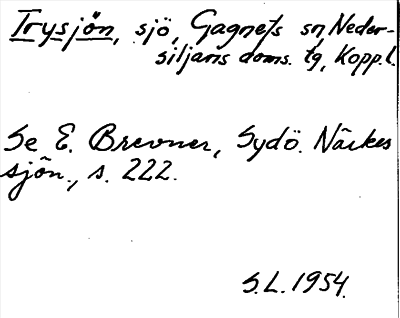 Trysjön, sjö, Gagnefs sn, Neder-
siljans doms. tg, Kopp.l.
Se E. Brevner, Sydö. Närkes
sjön., s. 222.
S.L. 1954.